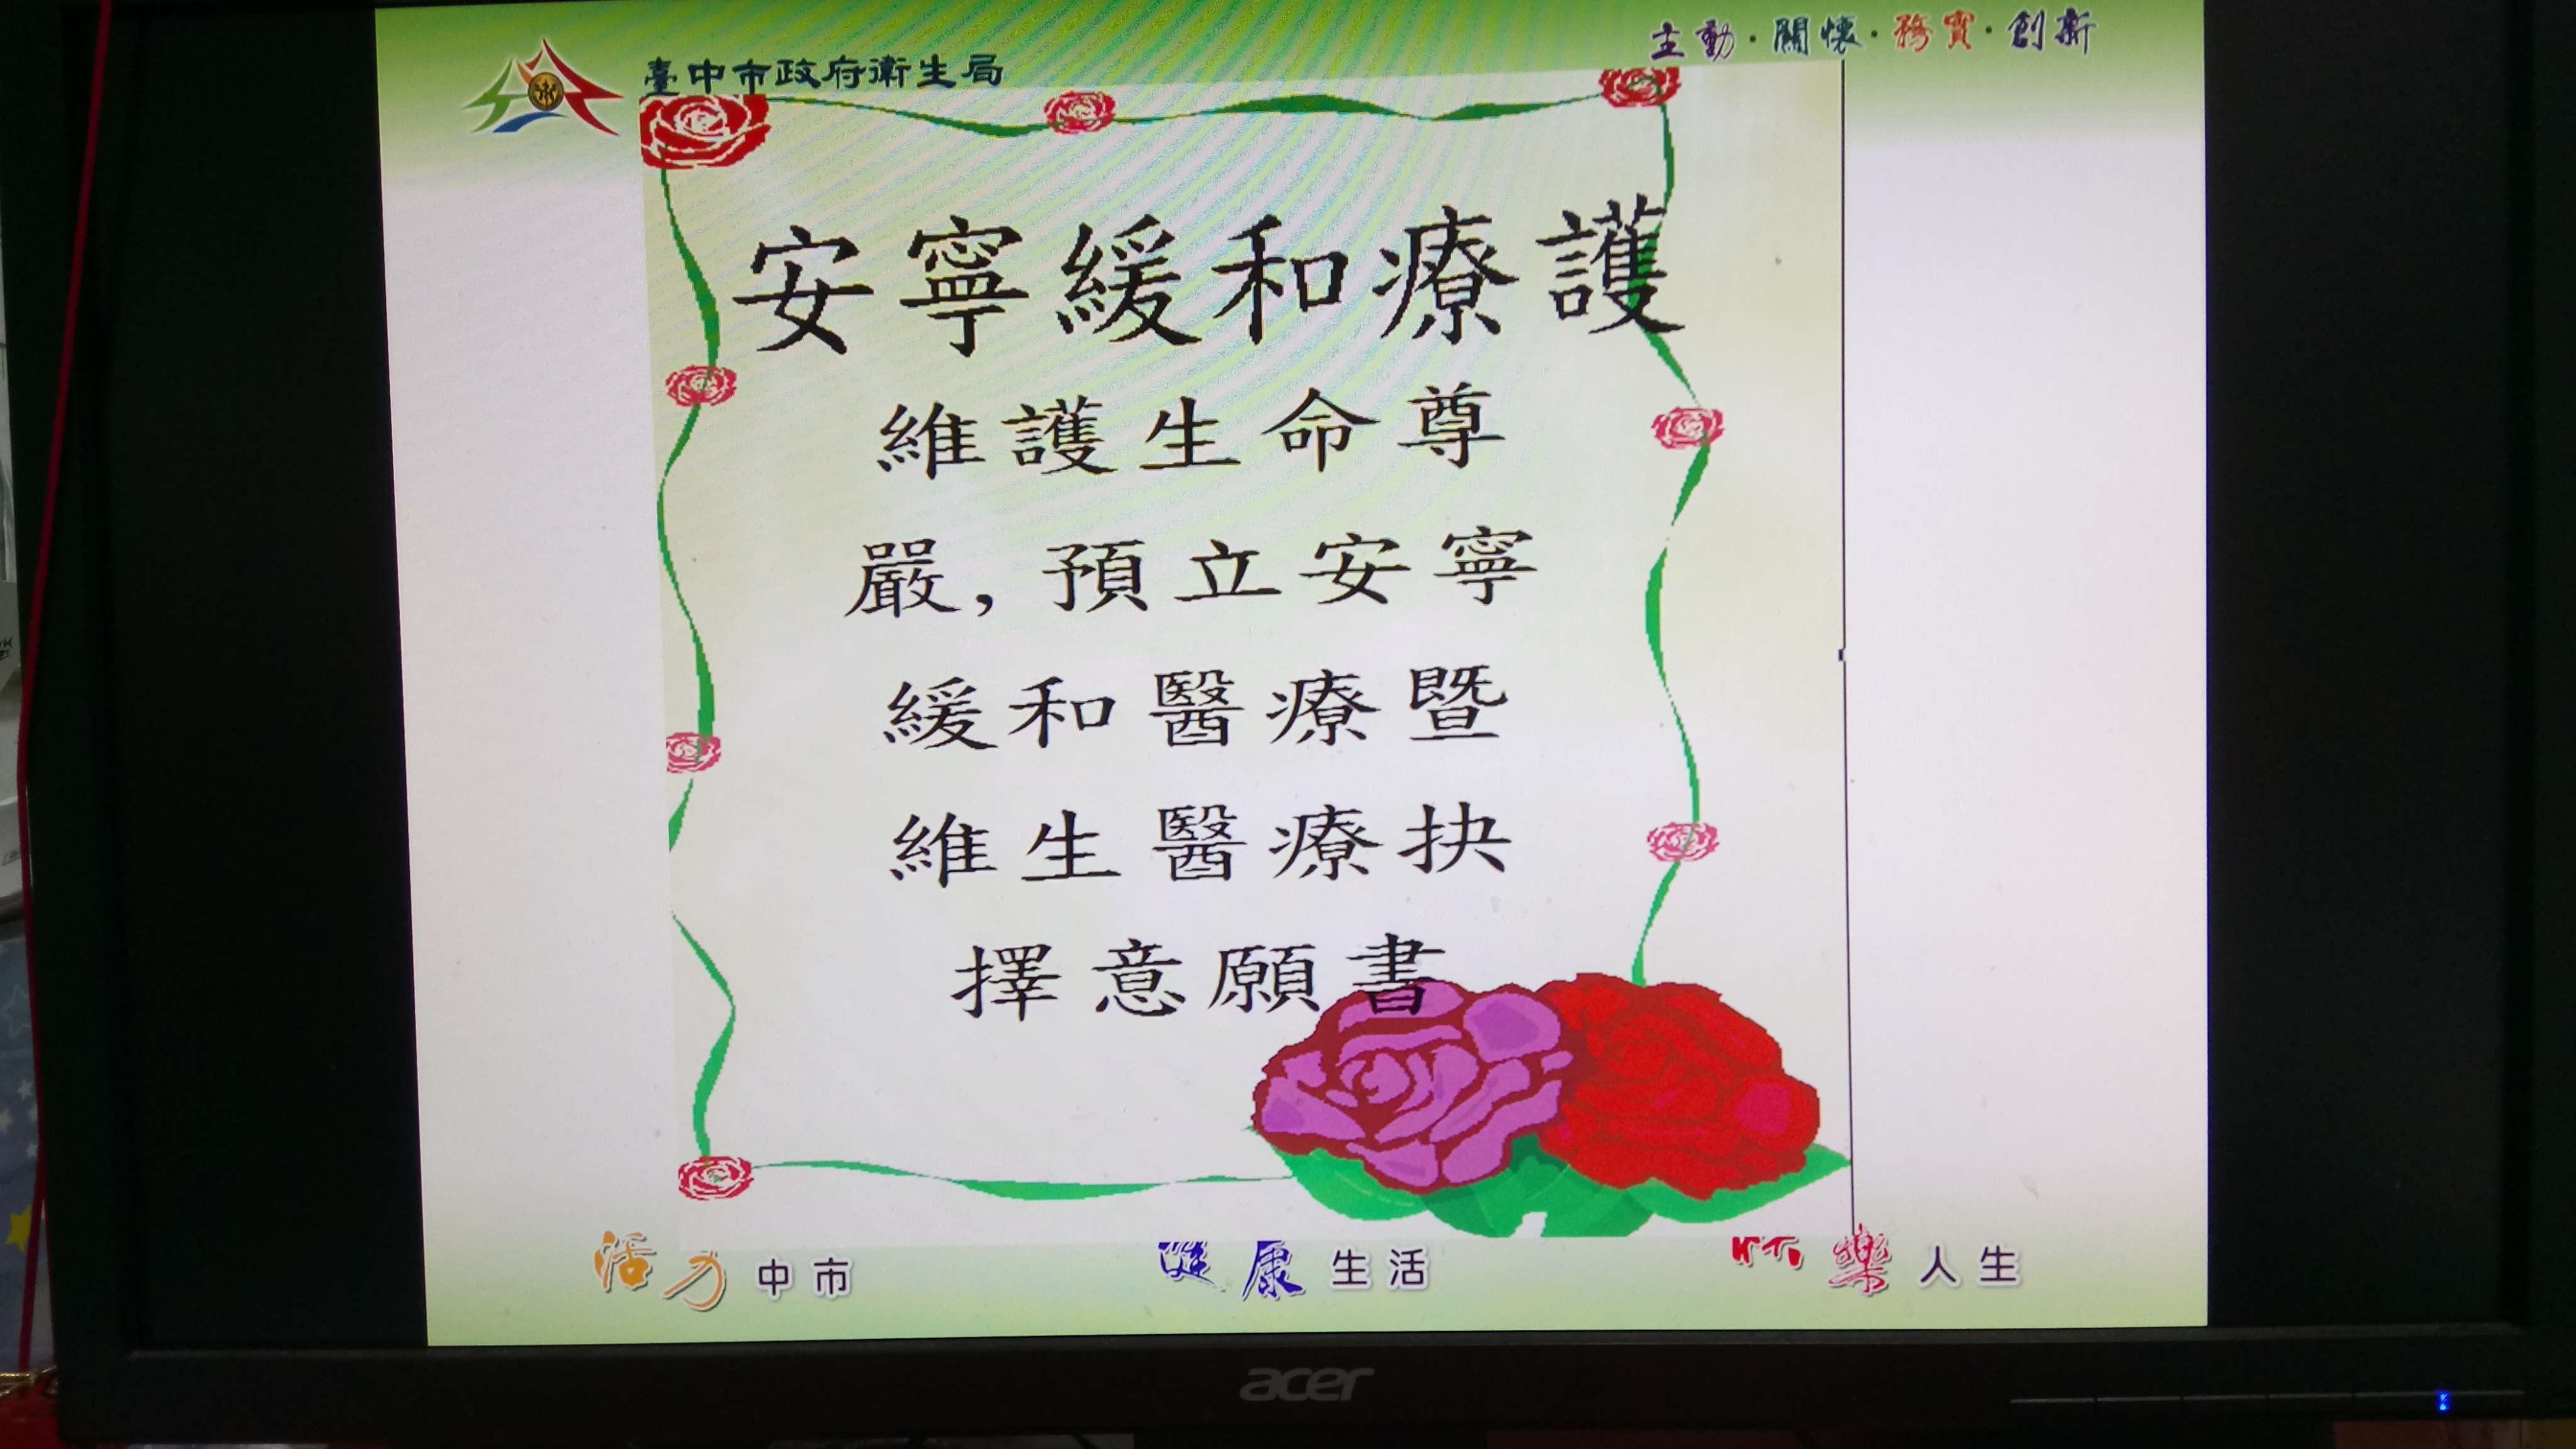 臺中市政府衛生局
主動·關懷·務實·創新
安寧緩和療護
維護生命尊
嚴,預立安寧
緩和醫療暨
維生醫療抉
擇意願書
活力中市
健康生活
樂人生
acer